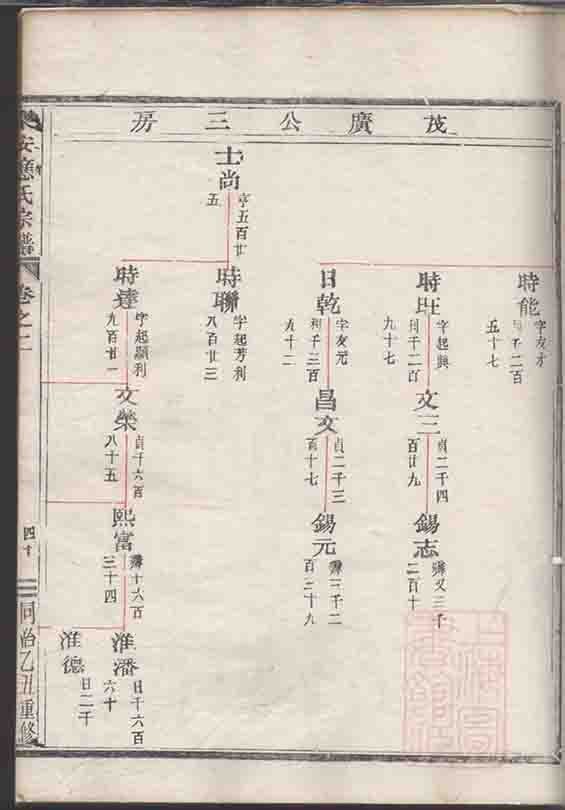 茂廣公三房
時能
字友才
利千二百
五十七
時旺
字起興
利千二百
九十七
文三
貞二千四
百廿九
錫志
二百十
日乾
字友元
利千三百
九十二
昌文
貞二千三
百十七
錫元
百三十九
士尚
亨五百廿
五
時聯
字起芳利
八百廿三
時達
字起顯利
九百廿一
文榮
貞千六百
八十五
熙富
三十四
淮潘
日千六百
六十
淮德
日二千
安應氏宗譜
卷之二
四十
同治乙丑重修